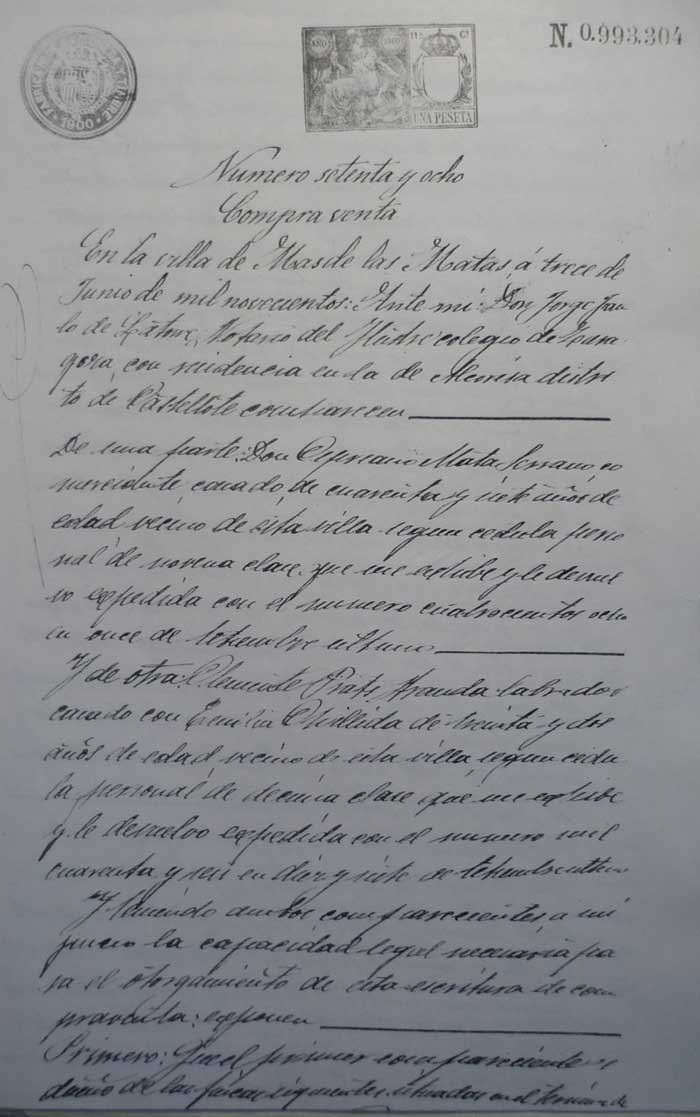 N. 0.993.304
AÑO 1900
11ª Cª
UNA PESETA
Numero setenta y ocho
Compra venta
En la villa de Mas de las Matas, á trece de
Junio de mil novecientos: Ante mi: Don Jorge
lo de Notario del Ilustre colegio de Zara
goza, con residencia en la de Alcorisa distri
to de Castellote comparecen
De una parte: Don Cipriano Mata Serrano, co
merciante, casado, de cuarenta y siete años de
edad vecino de esta villa segun cedula perso
nal de novena clase, que me exhibe y le devuel
vo expedida con el numero cuatrocientos ocho
en once de Setiembre ultimo
Y de otra: Clemente Prats Aranda labrador
casado con Emilia Chillida de treinta y dos
años de edad vecino de esta villa, segun cedu
la personal de decima clase que me exhibe
y le devuelvo expedida con el numero mil
cuarenta y seis en diez y siete de Setiembre ultimo
Y teniendo ambos comparecientes, a mi
juicio la capacidad legal necesaria pa
ra el otorgamiento de esta escritura de com
praventa: exponen
Primero: Que el primer compareciente es
dueño de las fincas siguientes, situadas en el término de